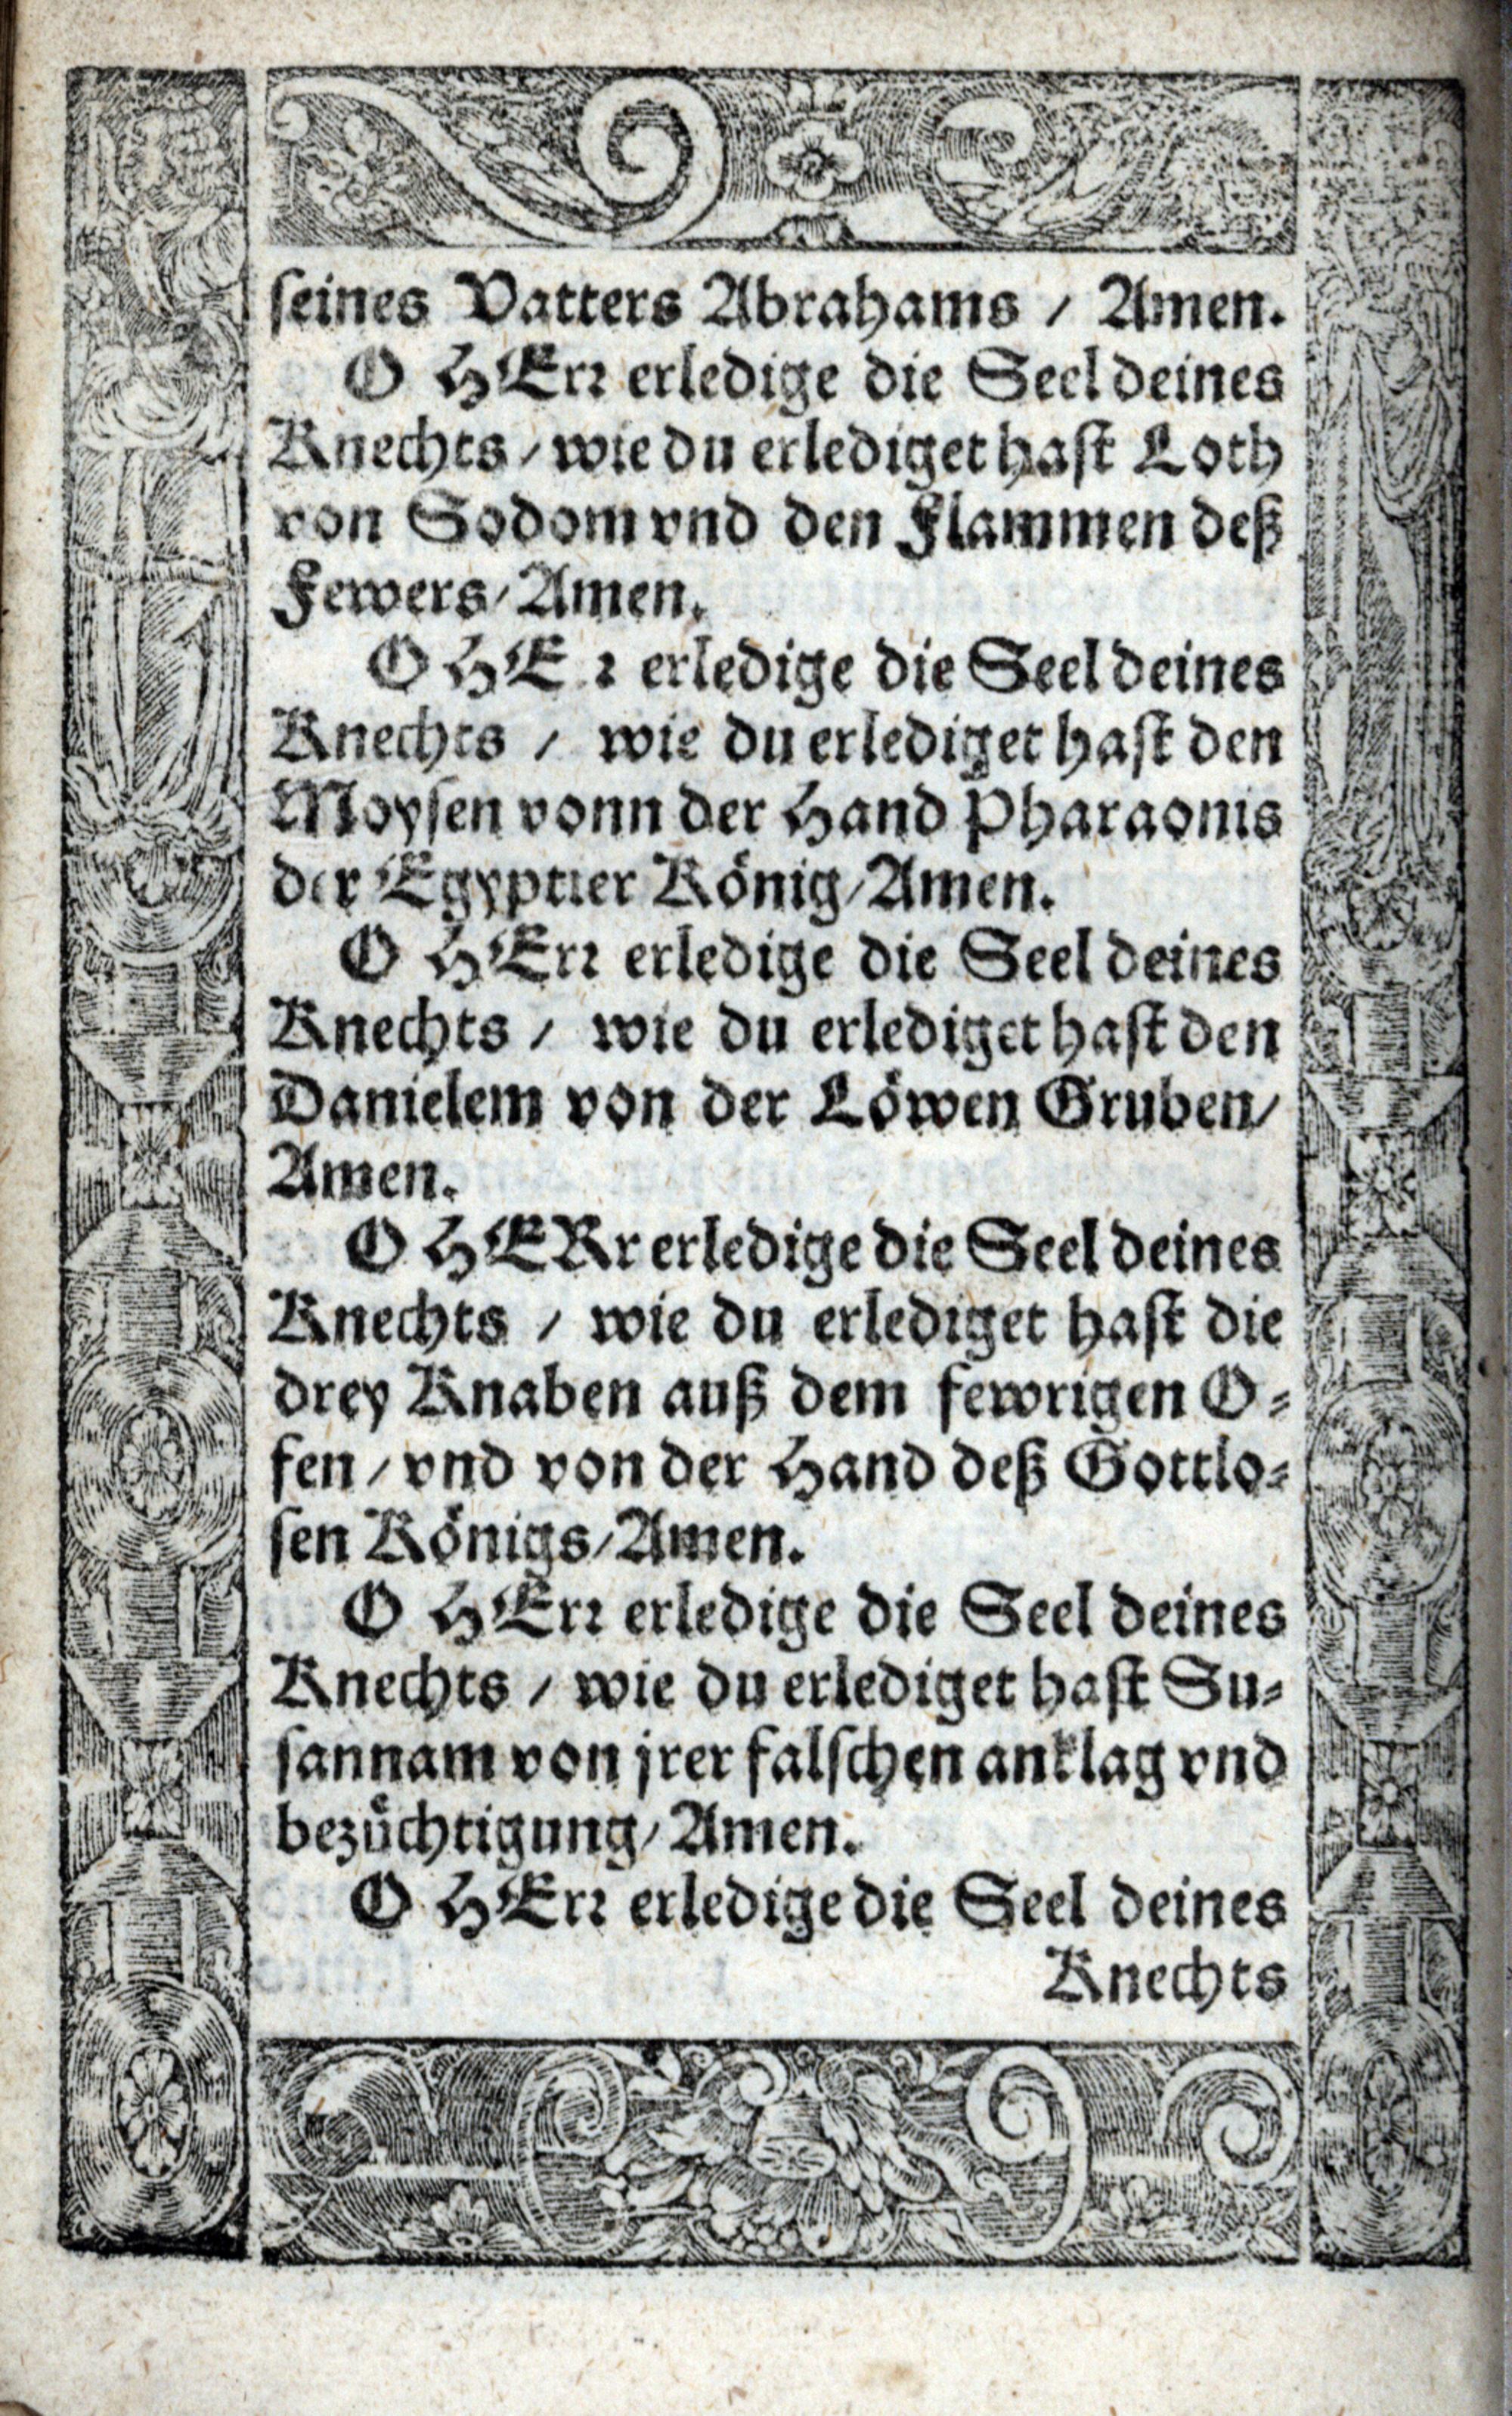 seines Vatters Abrahams / Amen.
O HErr erledige die Seel deines
Knechts / wie du erlediget hast Loth
von Sodom vnd den Flammen deß
Fewers / Amen.
O HE r erledige die Seel deines
Knechts / wie du erlediget hast den
Moysen vonn der Hand Pharaonis
der Egyptier König / Amen.
O HErr erledige die Seel deines
Knechts / wie du erlediget hast den
Danielem von der Löwen Gruben /
Amen.
O HERr erledige die Seel deines
Knechts / wie du erlediget hast die
drey Knaben auß dem fewrigen O⸗
fen / vnd von der Hand deß Gottlo⸗
sen Königs / Amen.
O HErr erledige die Seel deines
Knechts / wie du erlediget hast Su⸗
sannam von jrer falschen anklag vnd
bezüchtigung / Amen.
O HErr erledige die Seel deines
Knechts